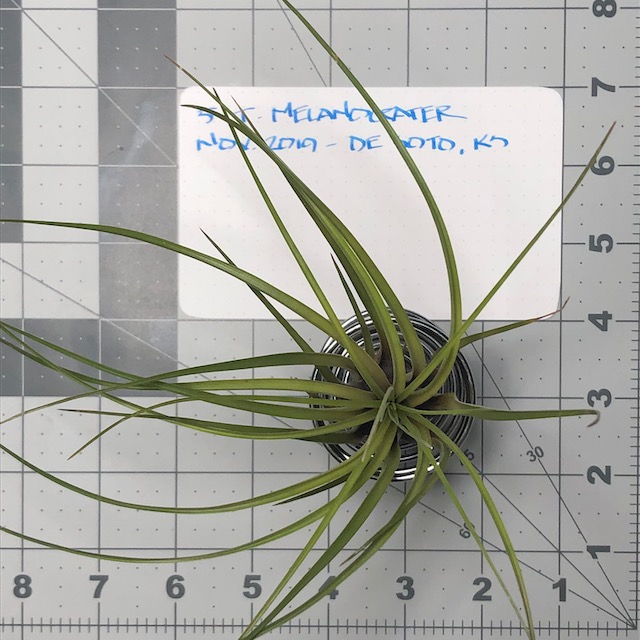 T. MELANOCRATER
NOV. 2019 - DE SOTO, KS
8
7
6
5
4
3
2
1
30
60
8 7 6 5 4 3 2 1